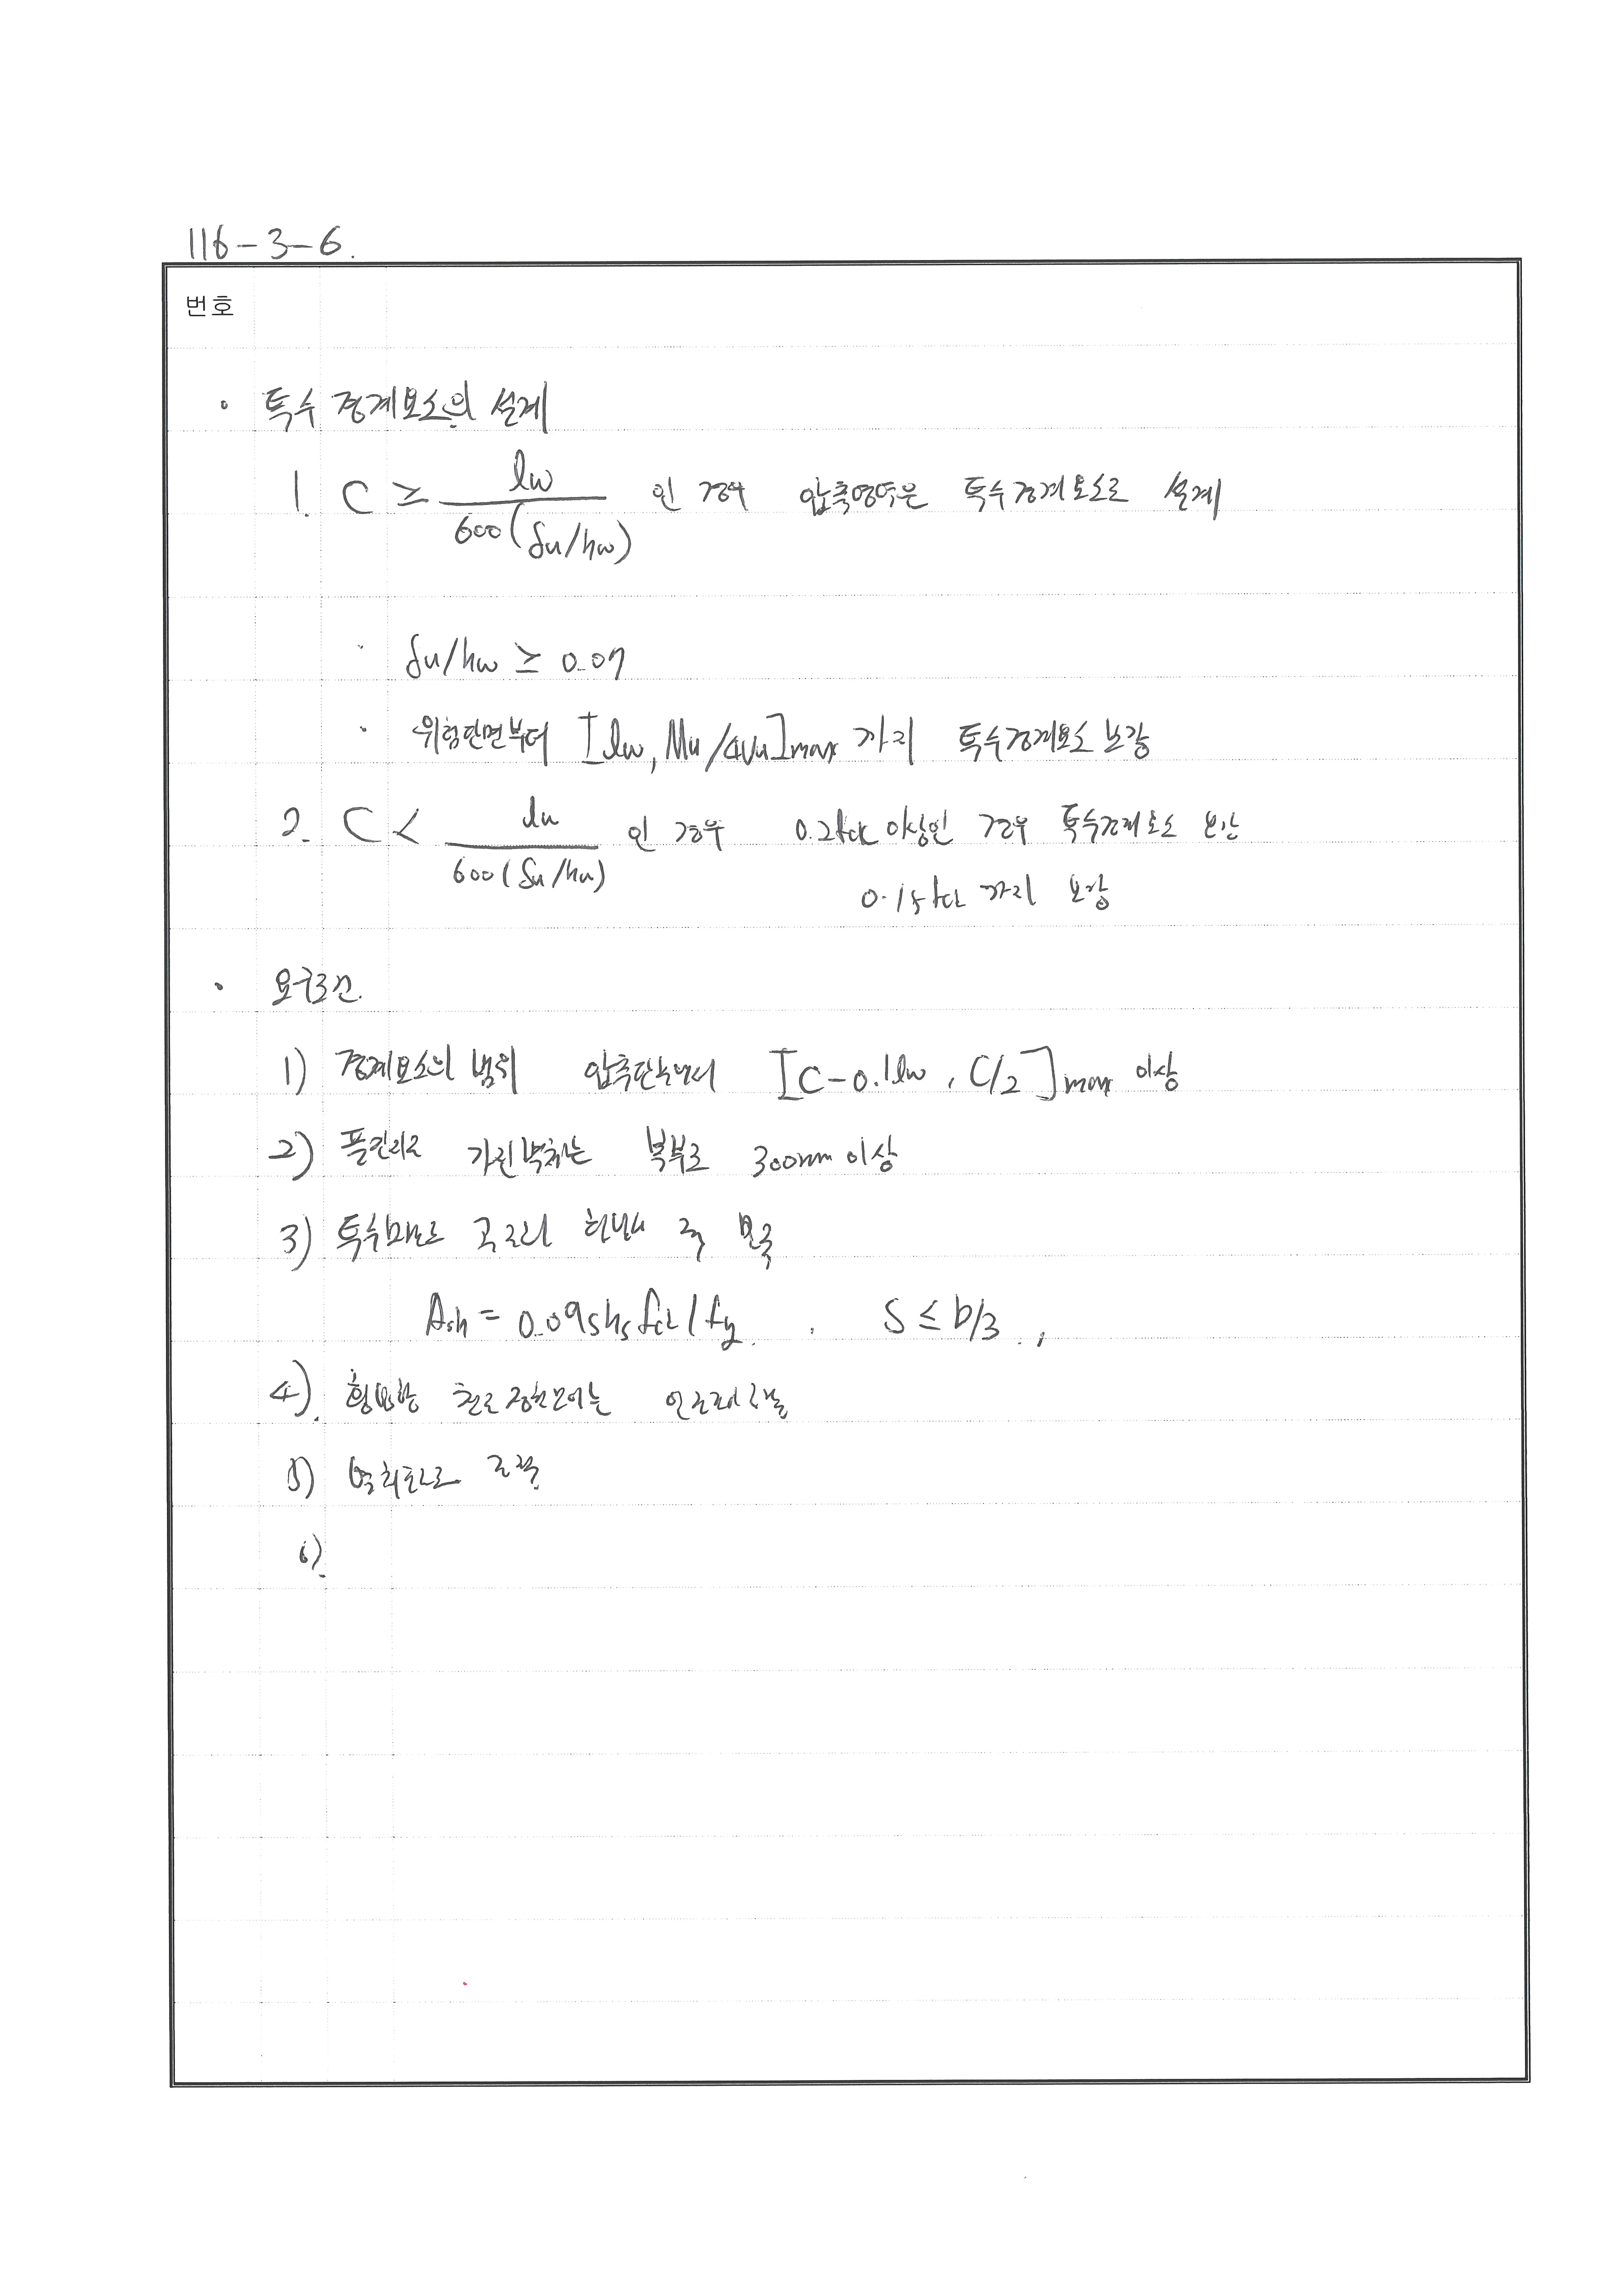 116-3-6.
번호
· 특수 경계요소의 설계
1. C ≥ lw / 600(δu/hw) 인 경우 압축영역은 특수경계요소로 설계
· δu/hw ≥ 0.07
· 위험단면부터 [lw, Mu/4Vu]max 까지 특수경계요소 보강
2. C < lu / 600(δu/hu) 인 경우 0.2fck 이상인 경우 특수경계요소 보강
0.15fck 까지 보강
· 요구조건.
1) 경계요소의 범위 압축단부에서 [C-0.1lw, C/2]max 이상
2) 플랜지로 가진 벽체는 복부로 300mm 이상
3) 특수모멘트 골조의
Ash = 0.09shs fck/fy. , S ≤ b/3 .,
4). 횡방향 철근
5)
6).